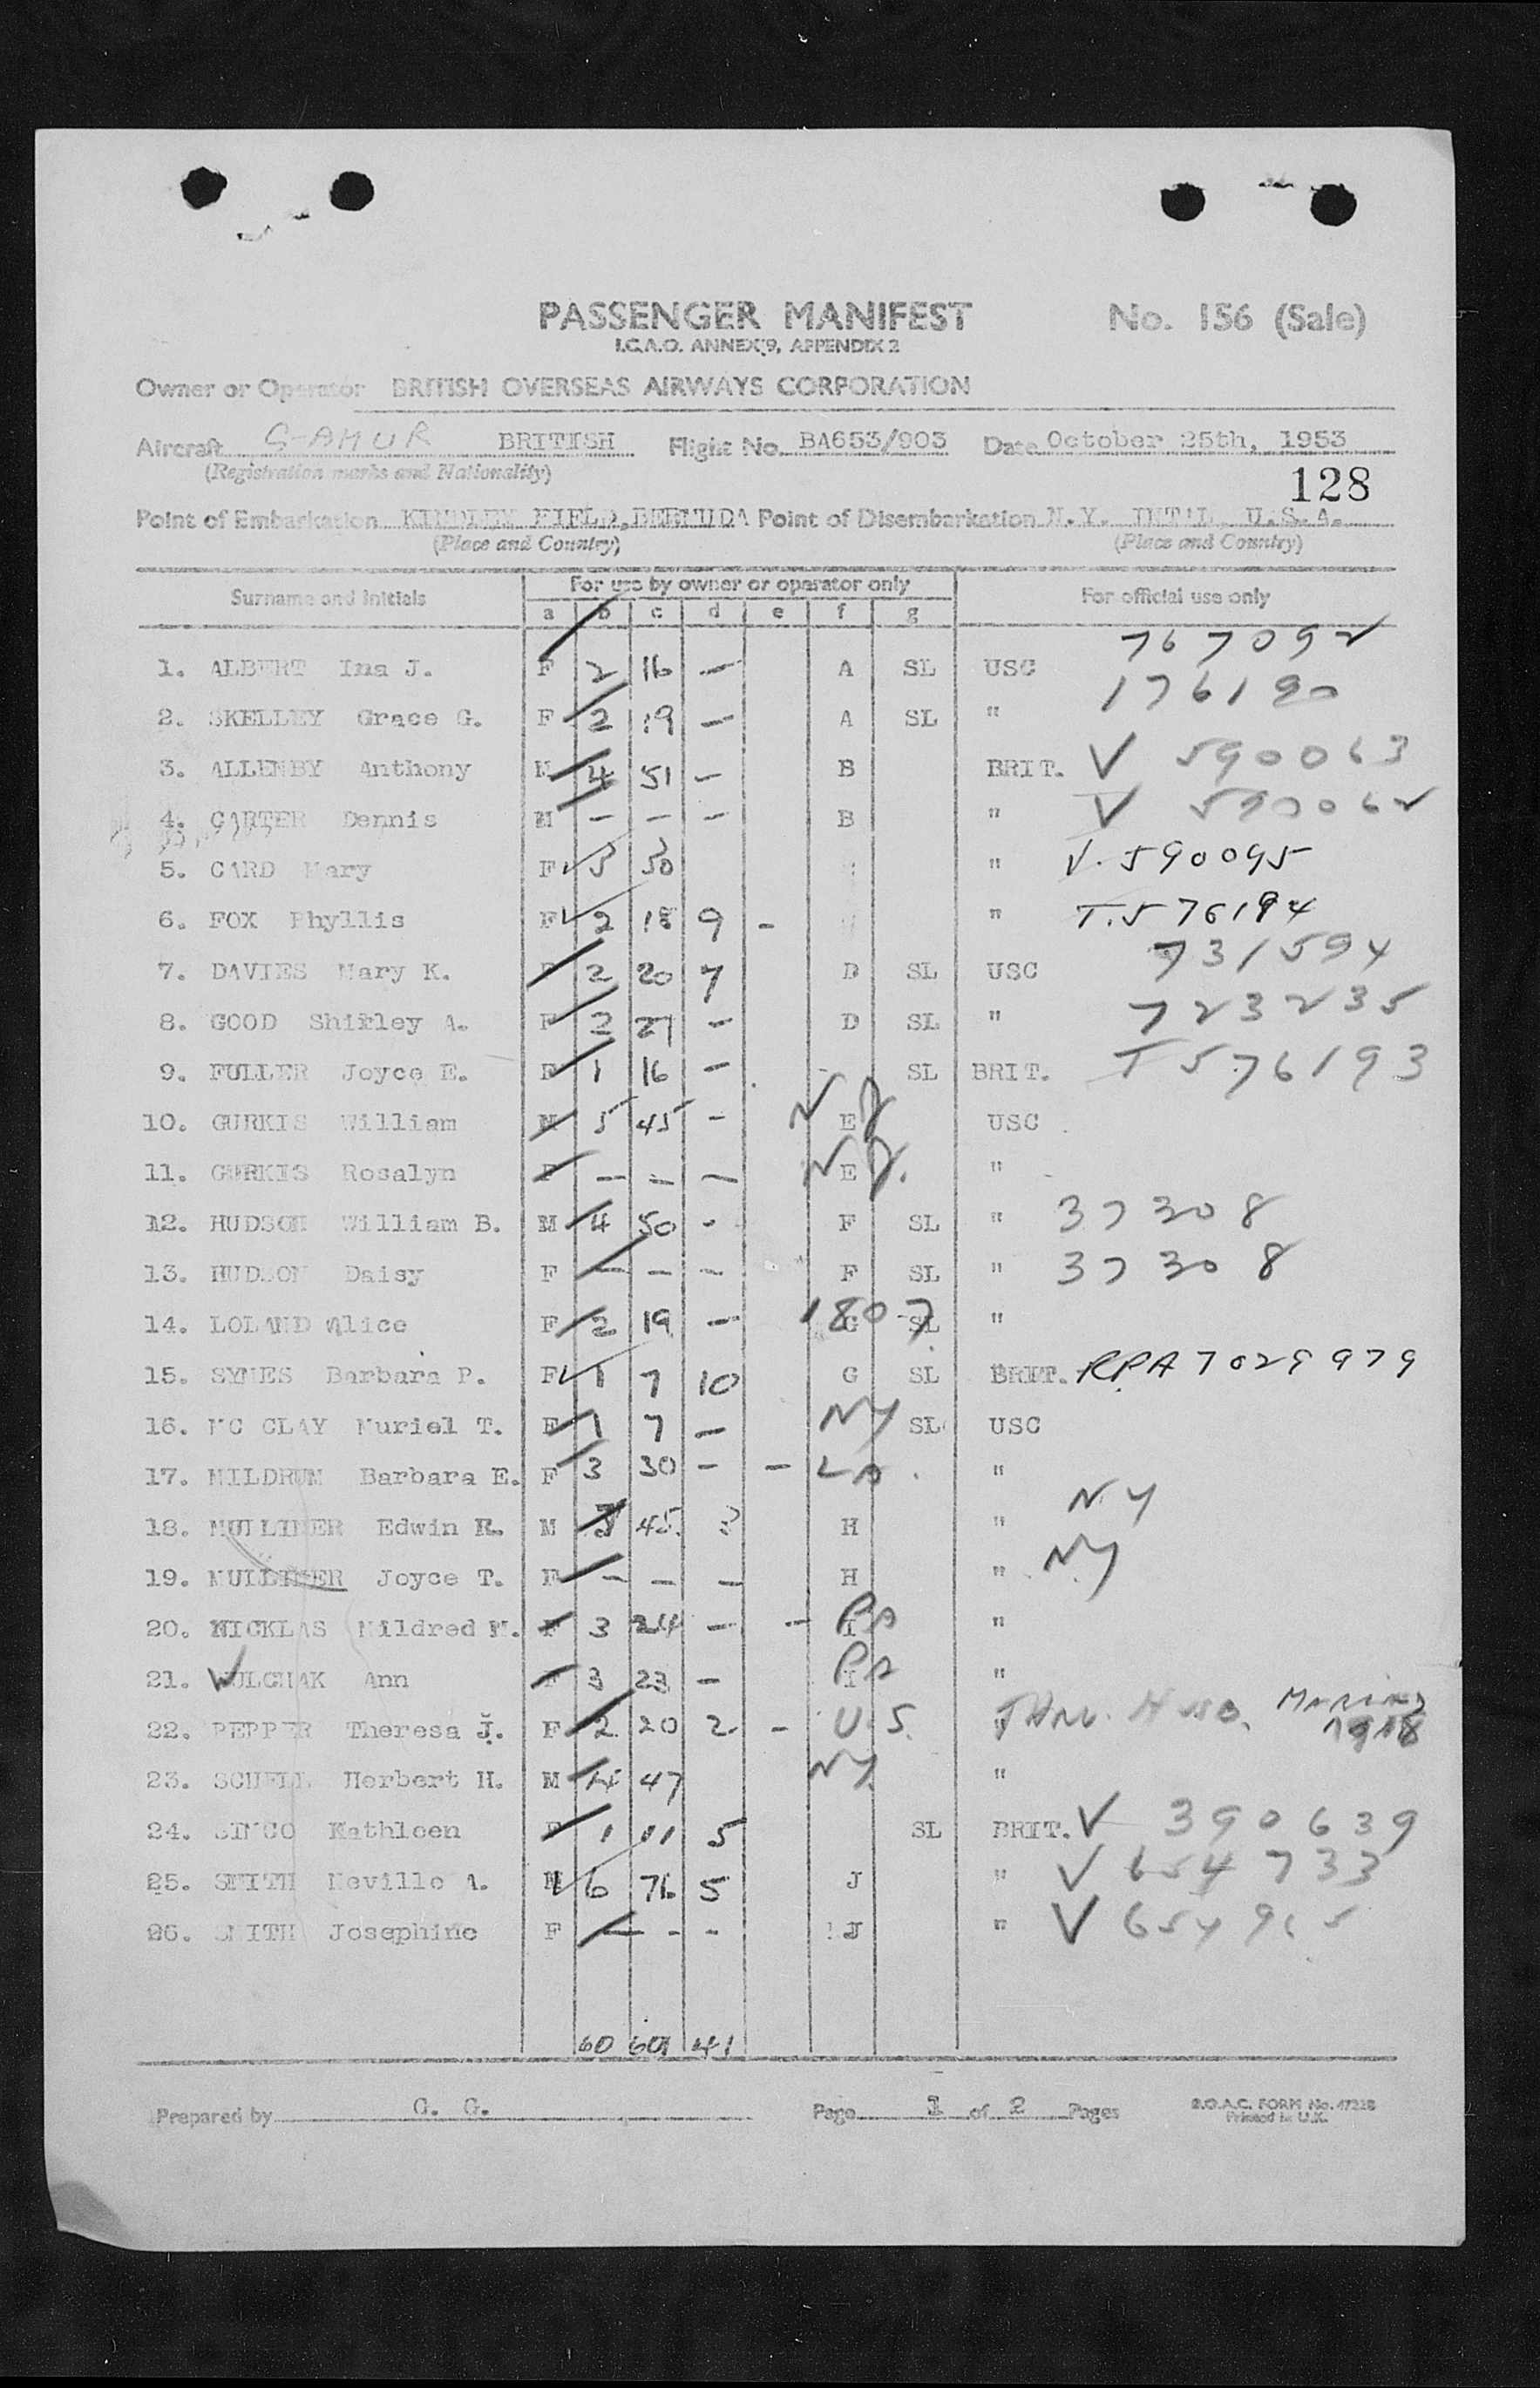 PASSENGER MANIFEST No. 156 (Sale)
I.C.A.O. ANNEX 9, APPENDIX 2
Owner or Operator BRITISH OVERSEAS AIRWAYS CORPORATION
Aircraft G-AHUR BRITISH Flight No. BA653/903 Date October 25th, 1953
(Registration marks and Nationality)
128
Point of Embarkation KINDLEY FIELD, BERMUDA Point of Disembarkation N.Y. INT'L, U.S.A.
(Place and Country) (Place and Country)
Surname and Initials For use by owner or operator only For official use only
a b c d e f g
1. ALBERT Ina J. F 2 16 — A SL USC 767092
2. SKELLEY Grace G. F 2 19 — A SL " 176190
3. ALLENBY Anthony M 4 51 — B BRIT. V 590063
4. CARTER Dennis M — — — B " V 590062
5. CARD Mary F 3 30 " V. 590095
6. FOX Phyllis F 2 18 9 - " T. 576194
7. DAVIES Mary K. F 2 20 7 D SL USC 731594
8. GOOD Shirley A. F 2 27 — D SL " 723235
9. FULLER Joyce E. F 1 16 — SL BRIT. T 576193
10. GURKIS William M 5 45 - NJ E USC
11. GURKIS Rosalyn F — — — NJ. E "
12. HUDSON William B. M 4 50 - F SL " 37308
13. HUDSON Daisy F — — — F SL " 37308
14. LOLAND Alice F 2 19 — 1807 G SL "
15. SYMES Barbara P. F 1 7 10 G SL BRIT. RPA 7029979
16. MC CLAY Muriel T. F 1 7 — NY SL USC
17. MILDRUM Barbara E. F 3 30 — — La. "
18. MULLINER Edwin R. M 3 45 3 H " NY
19. MULLINER Joyce T. F — — — H " NY
20. NICKLAS Mildred M. F 3 24 — — Pa I "
21. WULCHAK Ann F 3 23 — Pa I "
22. PEPPER Theresa J. F 2 20 2 - U.S. " Thru. Husb. Married
23. SCHELL Herbert H. M 4 47 NY. "
24. SIMCO Kathleen F 1 11 5 SL BRIT. V 390639
25. SMITH Neville A. M 6 76 5 J " V 654733
26. SMITH Josephine F — - - J " V
60 601 41
Prepared by G. G. Page 1 of 2 Pages B.O.A.C. FORM No.
Printed in U.K.